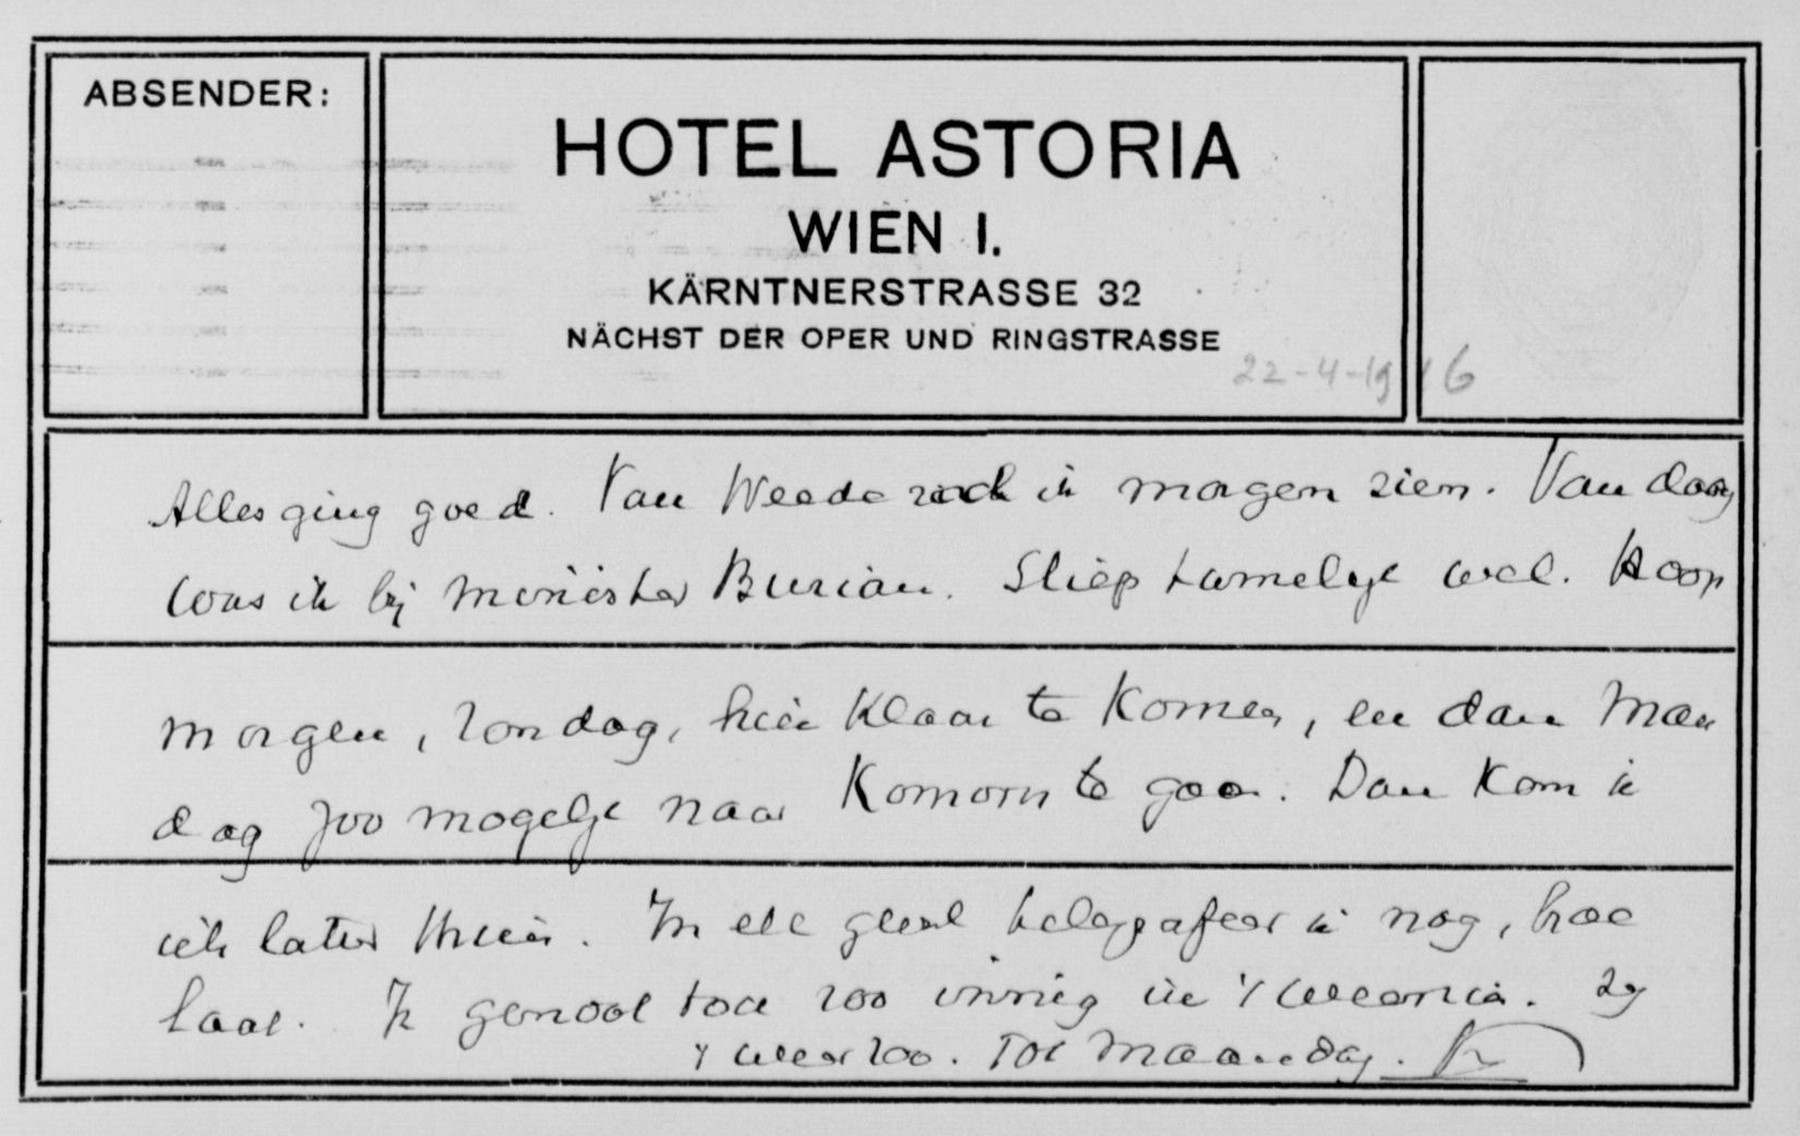 ABSENDER:
HOTEL ASTORIA
WIEN I.
KÄRNTNERSTRASSE 32
NÄCHST DER OPER UND RINGSTRASSE
22-4-1916
Alles ging goed. Van Weede zoek ik morgen zien. Vandaag
was ik bij minister Burian. Sliep tamelijk wel. Hoop
morgen, Zondag, hier klaar te komen, en dan Maan
dag zoo mogelijk naar Komorn te gaan. Dan kom ik
iets later thuis. In elk geval telegrafeer ik nog, hoe
laat. Ik genoot toch zoo innig in 't weerzien. Zij
't weer zoo. Tot Maandag.